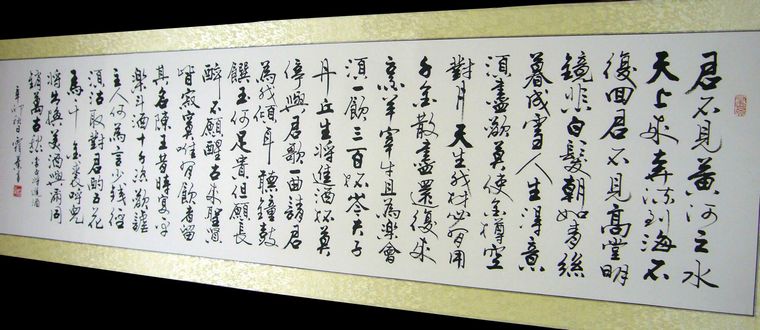 君不見黃河之水
天上來奔流到海不
復回君不見高堂明
鏡悲白髮朝如青絲
暮成雪人生得意
須盡歡莫使金樽空
對月天生我材必有用
千金散盡還復來
烹羊宰牛且為樂會
須一飲三百杯岑夫子
丹丘生將進酒杯莫
停與君歌一曲請君
為我傾耳聽鐘鼓
饌玉何足貴但願長
醉不願醒古來聖賢
皆寂寞惟有飲者留
其名陳王昔時宴平
樂斗酒十千恣歡謔
主人何為言少錢徑
須沽取對君酌五花
馬千金裘呼兒
將出換美酒與爾同
銷萬古愁 李白將進酒
辛卯秋日